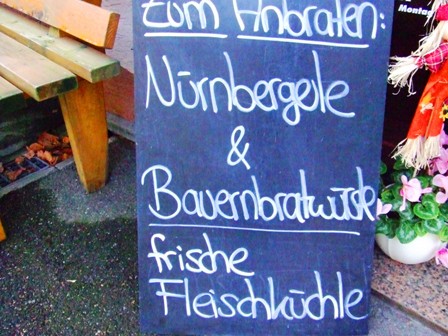 zum Anbraten:
Nürnbergerle
&
Bauernbratwürste
frische
Fleischküchle
Montag